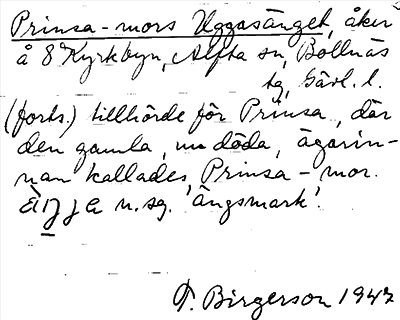 Prinsa-mors Uggasänget, åker
å 8 Kyrkbyn, Alfta sn, Bollnäs
tg, Gävl. l.
(forts.) tillhörde för Prinsa, där
den gamla, nu döda, ägarin-
nan kallades Prinsa-mor.
n. sg. 'ängsmark'.
T. Birgerson 1947